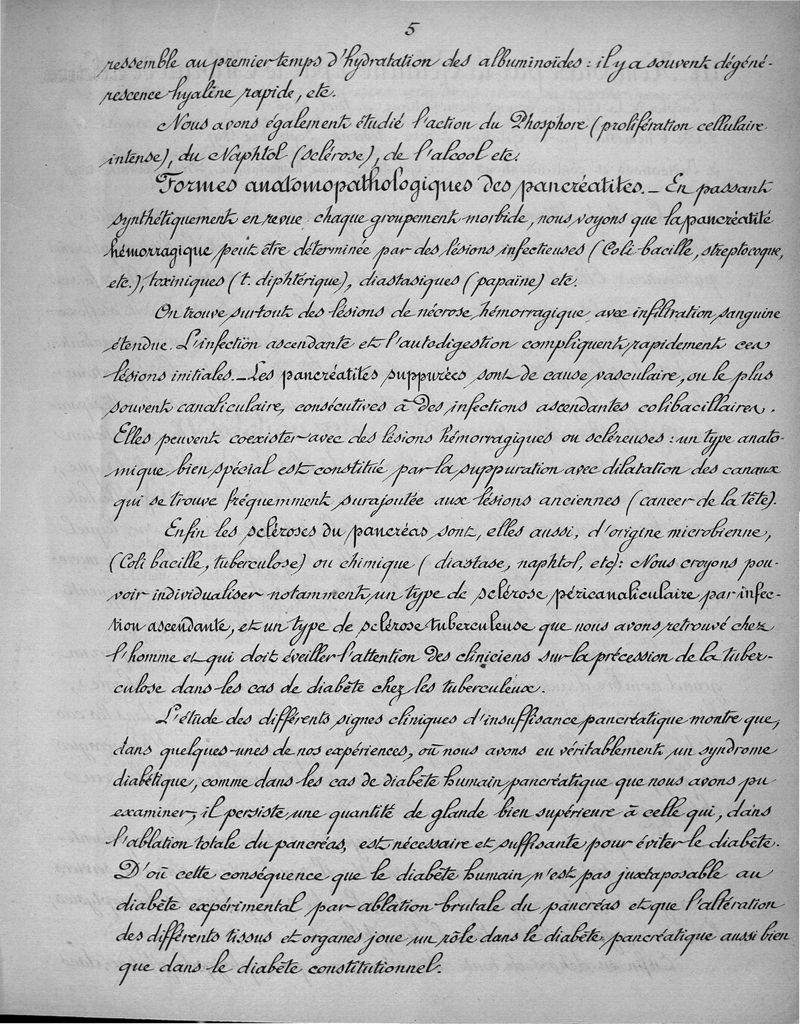 5
ressemble au premier temps d'hydratation des albuminoïdes : il y a souvent dégéné-
rescence hyaline rapide, etc.
Nous avons également étudié l'action du Phosphore (prolifération cellulaire
intense), du Naphtol (sclérose), de l'alcool etc.
Formes anatomopathologiques des pancréatites. – En passant
synthétiquement en revue chaque groupement morbide, nous voyons que la pancréatite
hémorragique peut être déterminée par des lésions infectieuses (Coli bacille, streptocoque,
etc.), toxiniques (t. diphtérique), diastasiques (papaïne) etc.
On trouve surtout des lésions de nécrose hémorragique avec infiltration sanguine
étendue. L'infection ascendante et l'autodigestion compliquent rapidement ces
lésions initiales. – Les pancréatites suppurées sont de cause vasculaire, ou le plus
souvent canaliculaire, consécutives à des infections ascendantes colibacillaires.
Elles peuvent coexister avec des lésions hémorragiques ou scléreuses : un type anato-
mique bien spécial est constitué par la suppuration avec dilatation des canaux
qui se trouve fréquemment surajoutée aux lésions anciennes (cancer de la tête).
Enfin les scléroses du pancréas sont, elles aussi, d'origine microbienne,
(Coli bacille, tuberculose) ou chimique (diastase, naphtol, etc) : Nous croyons pou-
voir individualiser notamment un type de sclérose péricanaliculaire par infec-
tion ascendante, et un type de sclérose tuberculeuse que nous avons retrouvé chez
l'homme et qui doit éveiller l'attention des cliniciens sur la précession de la tuber-
culose dans les cas de diabète chez les tuberculeux.
L'étude des différents signes cliniques d'insuffisance pancréatique montre que,
dans quelques-unes de nos expériences, où nous avons eu véritablement un syndrome
diabétique, comme dans les cas de diabète humain pancréatique que nous avons pu
examiner, il persiste une quantité de glande bien supérieure à celle qui, dans
l'ablation totale du pancréas, est nécessaire et suffisante pour éviter le diabète.
D'où cette conséquence que le diabète humain n'est pas juxtaposable au
diabète expérimental par ablation brutale du pancréas et que l'altération
des différents tissus et organes joue un rôle dans le diabète pancréatique aussi bien
que dans le diabète constitutionnel.